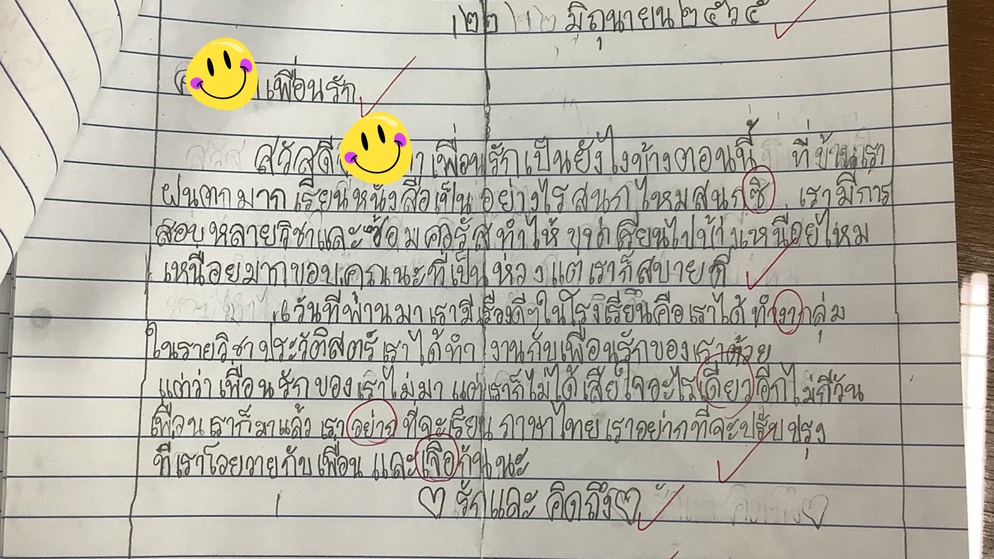 ๒๒ มิถุนายน ๒๕๖๕
เพื่อนรัก
สวัสดี เพื่อนรักเป็นยังไงบ้างตอนนี้ ที่บ้านเรา
ฝนตกมาก เรียนหนังสือเป็น อย่างไร สนุกไหมสนุกซิ เรามีการ
สอบหลายวิชาและซ้อม ทำให้ เรียนไปบ้าง เหนื่อยไหม
เหนื่อยมากขอบคุณนะที่เป็น ห่วง แต่เราก็สบายดี
วันที่ผ่านมา เรามีเรื่องดีๆในโรงเรียนคือเราได้ ทำงากลุ่ม
ในรายวิชาประวัติสตร์ เราได้ทำ งานกับเพื่อนรักของเราด้วย
แต่ว่า เพื่อนรักของเราไม่มา แต่เราก็ไม่ได้เสียใจอะไรเดี่ยวอีกไม่กี่วัน
เพื่อนเราก็มาแล้ว เราอย่าก ที่จะเรียน ภาษาไทย เราอย่ากที่จะปรับปรุง
ที่เราโวยวายกับเพื่อน และเจือกันนะ
♡ รักและ คิดถึง♡